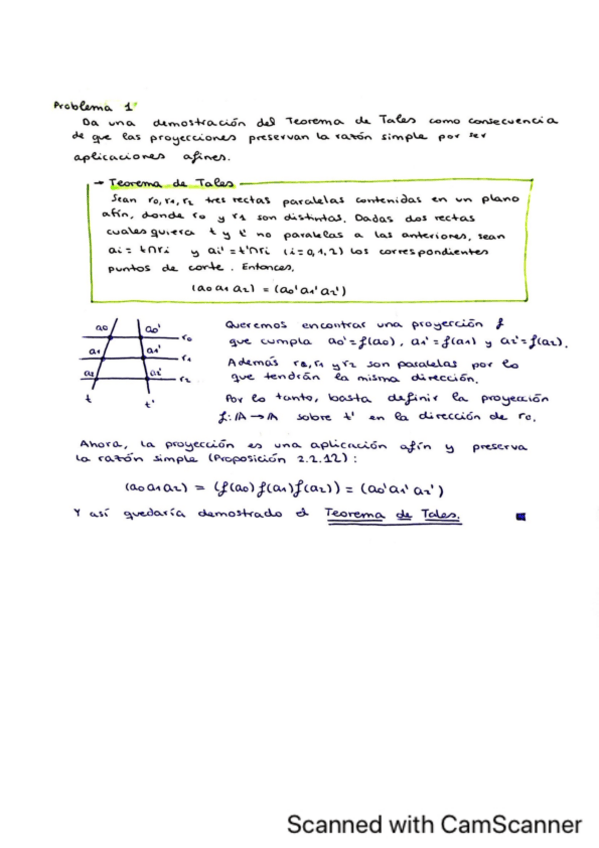 Problema 1
Da una demostración del Teorema de Tales como consecuencia
de que las proyecciones preservan la razón simple por ser
aplicaciones afines.
→ Teorema de Tales
Sean r₀, r₁, r₂ tres rectas paralelas contenidas en un plano
afín, donde r₀ y r₁ son distintas. Dadas dos rectas
cualesquiera t y t' no paralelas a las anteriores, sean
ai = t∩ri y ai' = t'∩ri (i=0,1,2) los correspondientes
puntos de corte. Entonces,
(a₀ a₁ a₂) = (a₀' a₁' a₂')
a₀ a₀' r₀
a₁ a₁' r₁
a₂ a₂' r₂
t t'
Queremos encontrar una proyección f
que cumpla a₀'=f(a₀), a₁'=f(a₁) y a₂'=f(a₂).
Además r₀, r₁ y r₂ son paralelas por lo
que tendrán la misma dirección.
Por lo tanto, basta definir la proyección
f: A → A sobre t' en la dirección de r₀.
Ahora, la proyección es una aplicación afín y preserva
la razón simple (Proposición 2.2.12):
(a₀ a₁ a₂) = (f(a₀) f(a₁) f(a₂)) = (a₀' a₁' a₂')
Y así quedaría demostrado el Teorema de Tales.
Scanned with CamScanner